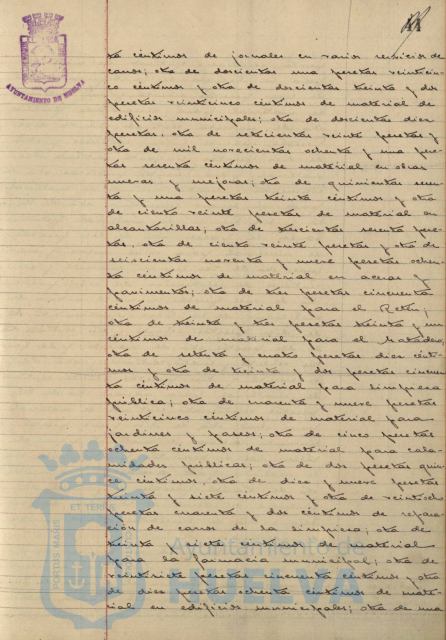 AYUNTAMIENTO DE HUELVA
ta céntimos de jornales en varios servicios de
carros; otra de doscientas una pesetas veinticin-
co céntimos y otra de doscientas treinta y dos
pesetas veinticinco céntimos de material de
edificios municipales; otra de doscientas diez
pesetas, otra de setecientas veinte pesetas y
otra de mil novecientas ochenta y una pese-
tas sesenta céntimos de material en obras
nuevas y mejoras; otra de quinientas seten-
ta y una pesetas treinta céntimos y otra
de ciento veinte pesetas de material en
alcantarillas; otra de trescientas sesenta pese-
tas, otra de ciento veinte pesetas y otra de
seiscientas noventa y nueve pesetas ochen-
ta céntimos de material en aceras y
pavimentos; otra de tres pesetas cincuenta
céntimos de material para el Retén;
otra de treinta y tres pesetas treinta y un
céntimos de material para el Matadero,
otra de setenta y cuatro pesetas diez cénti-
mos y otra de treinta y dos pesetas cincuen-
ta céntimos de material para limpieza
pública; otra de cuarenta y nueve pesetas
veinticinco céntimos de material para
jardines y paseos; otra de cinco pesetas
ochenta céntimos de material para cala-
midades públicas; otra de dos pesetas quin-
ce céntimos, otra de diez y nueve pesetas
treinta y siete céntimos y otra de veintiocho
pesetas cuarenta y dos céntimos de repara-
ción de carros de la limpieza; otra de
treinta y siete céntimos de material
para la farmacia municipal; otra de
veintisiete pesetas cincuenta céntimos y otra
de diez pesetas ochenta céntimos de mate-
rial en edificios municipales; otra de una
PORTUS MARIS ET TERRÆ
Ayuntamiento de
HUELVA